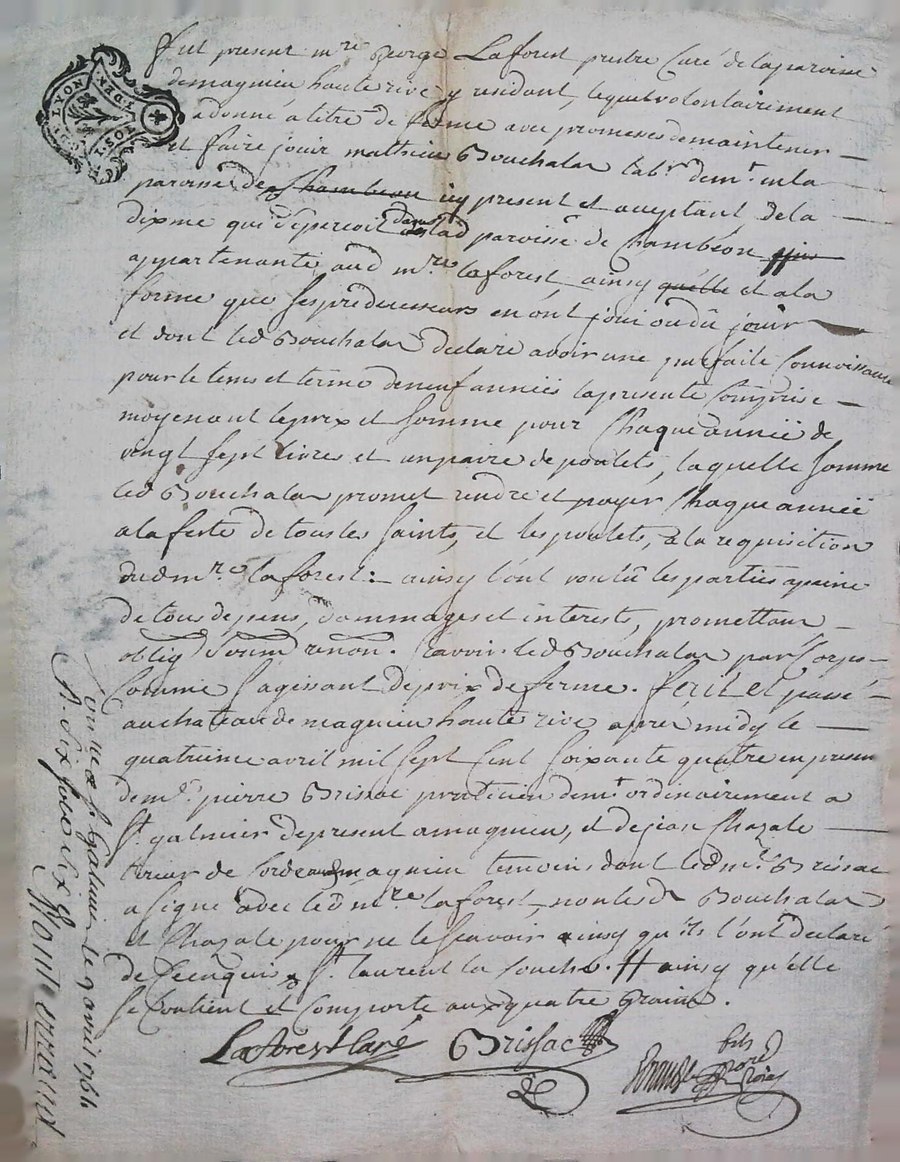 Fut present mre George Laforest prestre Curé de la paroisse
de magnieu hauterive y rendant, lequel volontairement
a donné a titre de ferme avec promesses de maintenir
et faire jouir mathieu Bouchalar labr demt en la
paroisse de Chambeon icy present et acceptant de la
dixme qui se perçoit dans lad paroisse de Chambéon
appartenante aud mre laforest ainsy quelle et a la
forme que ses predecesseurs en ont joui ou dû jouir
et dont led Bouchalar declare avoir une parfaite Connoissance
pour le tems et terme de neuf années la presente Comprise
moyenant le prix et somme pour Chaque année de
vingt sept livres et un paire de poulets, laquelle somme
led Bouchalar promet rendre et payer Chaque année
a la feste de tous les saints, et les poulets, à la requisition
dud mre laforest: ainsy l'ont voulû les parties a peine
de tous depens, dommages et interests, promettant
oblig soum renon. Scavoir led Bouchalar par Corps
Comme s'agissant de prix de ferme. fait et passé
au chateau de magnieu haute rive apres midy le
quatrieme avril mil sept Cent soixante quatre en presen
de me pierre Brissac praticien demt ordinairement a
St galmier de present a magnieu, et de jean Chazale
tireur de Corde magnieu temoins dont led me Brissac
a signé avec led mre laforest, non led Bouchalar
et Chazale pour ne le scavoir ainsy qu'ils l'ont declaré
de ce enquis St laurent la Conche. ainsy qu'elle
se Contient et Comporte aux quatre Grains.
Laforest Curé Brissac
fils
Noré
Roial
Con ne a St Galmier le 7 avril 1764
R. dix
LYON